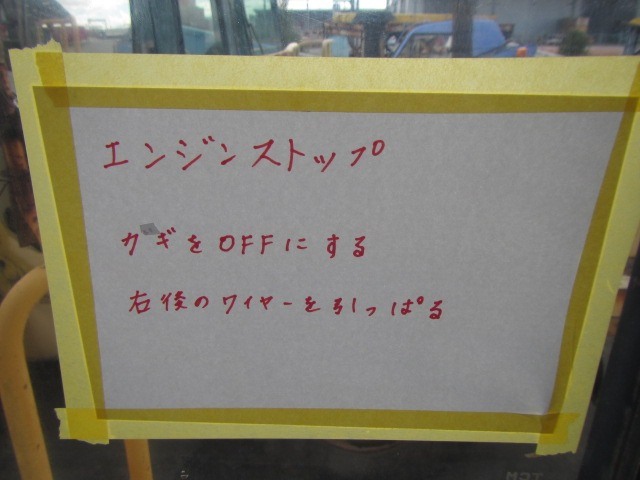 エンジンストップ
カギをOFFにする
右後のワイヤーを引っぱる